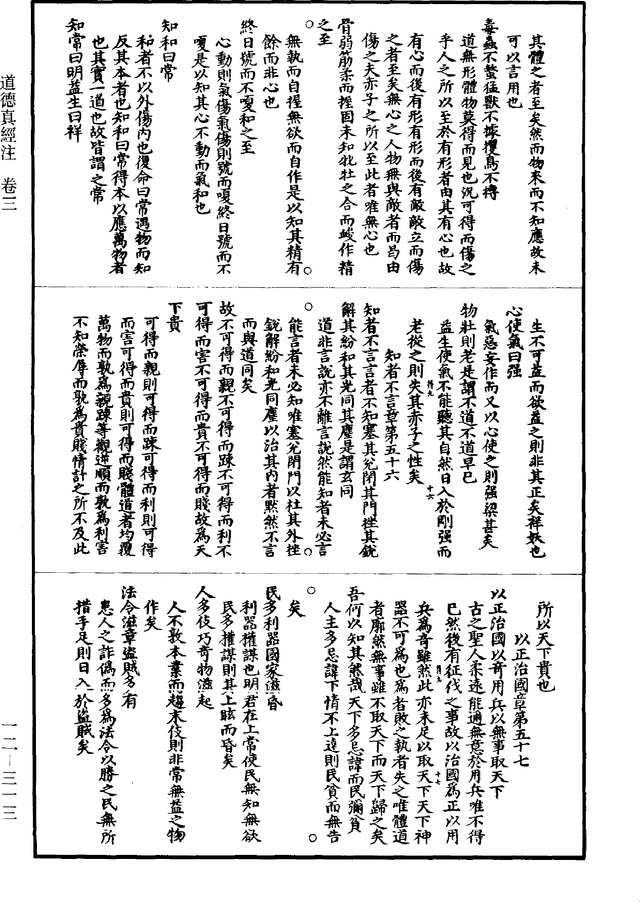 道德真經注　卷三
一二—三一三
其體之者至矣然而物來而不知應故未
可以言用也
毒蟲不螫猛獸不據攫鳥不搏
道無形體物莫得而見也況可得而傷之
乎人之所以至於有形者由其有心也故
有心而後有形有形而後有敵敵立而傷
之者至矣無心之人物無與敵者而曷由
傷之夫赤子之所以至此者唯無心也
骨弱筋柔而握固未知牝牡之合而峻作精
之至
無執而自握無欲而自作是以知其精有
餘而非心也
終日號而不嗄和之至
心動則氣傷氣傷則號而嗄終日號而不
嗄是以知其心不動而氣和也
知和曰常
和者不以外傷内也復命曰常遇物而知
反其本者也知和曰常得本以應萬物者
也其實一道也故皆謂之常
知常曰明益生曰祥
生不可益而欲益之則非其正矣祥妖也
心使氣曰强
氣惡妄作而又以心使之則强梁甚矣
物壯則老是謂不道不道早已
益生使氣不能聽其自然日入於剛强而
老從之則失其赤子之性矣
知者不言章第五十六
知者不言言者不知塞其兊閉其門挫其銳
解其紛和其光同其塵是謂玄同
道非言說亦不離言說然能知者未必言
能言者未必知唯塞兊閉門以杜其外挫
銳解紛和光同塵以治其内者默然不言
而與道同矣
故不可得而親不可得而踈不可得而利不
可得而害不可得而貴不可得而賤故爲天
下貴
可得而親則可得而踈可得而利則可得
而害可得而貴則可得而賤體道者均覆
萬物而孰爲親踈等觀逆順而孰爲利害
不知榮辱而孰爲貴賤情計之所不及此
所以天下貴也
以正治國章第五十七
以正治國以奇用兵以無事取天下
古之聖人柔遠能邇無意於用兵唯不得
已然後有征伐之事故以治國爲正以用
兵爲奇雖然此亦未足以取天下天下神
器不可爲也爲者敗之執者失之唯體道
者廓然無事雖不取天下而天下歸之矣
吾何以知其然哉天下多忌諱而民彌貧
人主多忌諱下情不上達則民貧而無告
矣
民多利器國家滋昏
利器權謀也明君在上常使民無知無欲
民多權謀則其上眩而昏矣
人多伎巧奇物滋起
人不敦本業而趨末伎則非常無益之物
作矣
法令滋章盜賊多有
患人之詐僞而多爲法令以勝之民無所
措手足則日入於盜賊矣